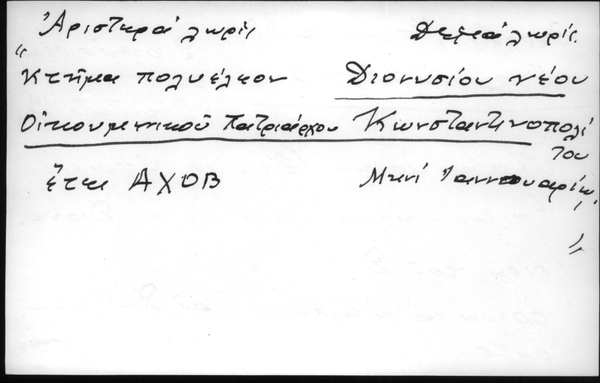 Ἀριστερά λωρίς Δεξιά λωρίς.
"Κτῆμα πολυέλεον Διονυσίου νέου
Οἰκουμενικοῦ Πατριάρχου Κωνσταντινοπολί
του
ἔτει ΑΧΟΒ Μηνί Ἰαννουαρίῳ,
"